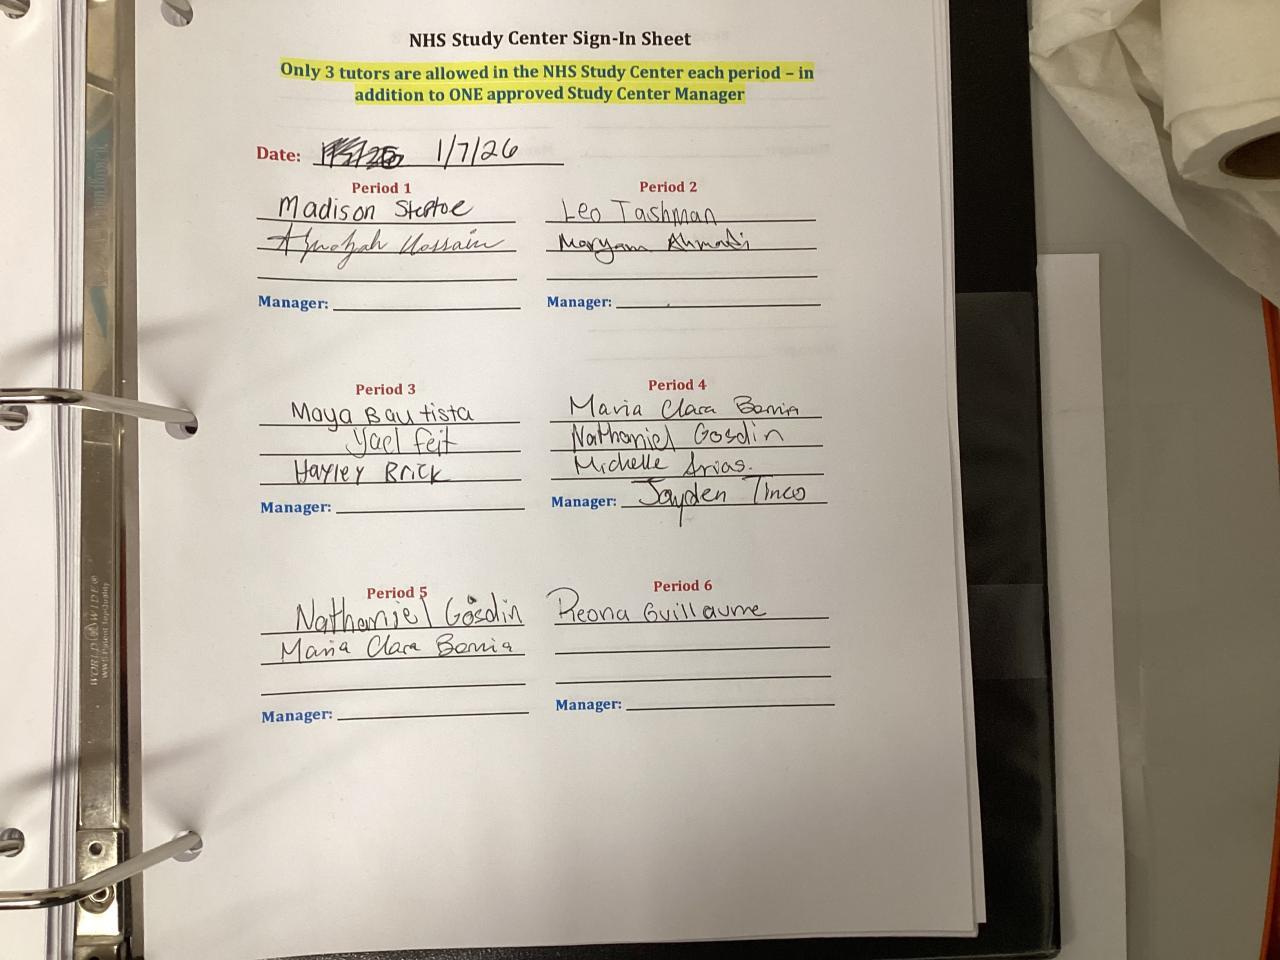 NHS Study Center Sign-In Sheet
Only 3 tutors are allowed in the NHS Study Center each period – in
addition to ONE approved Study Center Manager
Date: 1/7/26
Period 1
Madison Steptoe
Hossain
Manager:
Period 2
Leo Tashman
Maryam Ahmadi
Manager:
Period 3
Maya Bautista
Yael Feit
Hayley Brick
Manager:
Period 4
Maria Clara
Nathaniel Gosdin
Michelle Arias.
Manager: Jayden Tinco
Period 5
Nathaniel Gosdin
Maria Clara
Manager:
Period 6
Guillaume
Manager:
WORLD WIDE